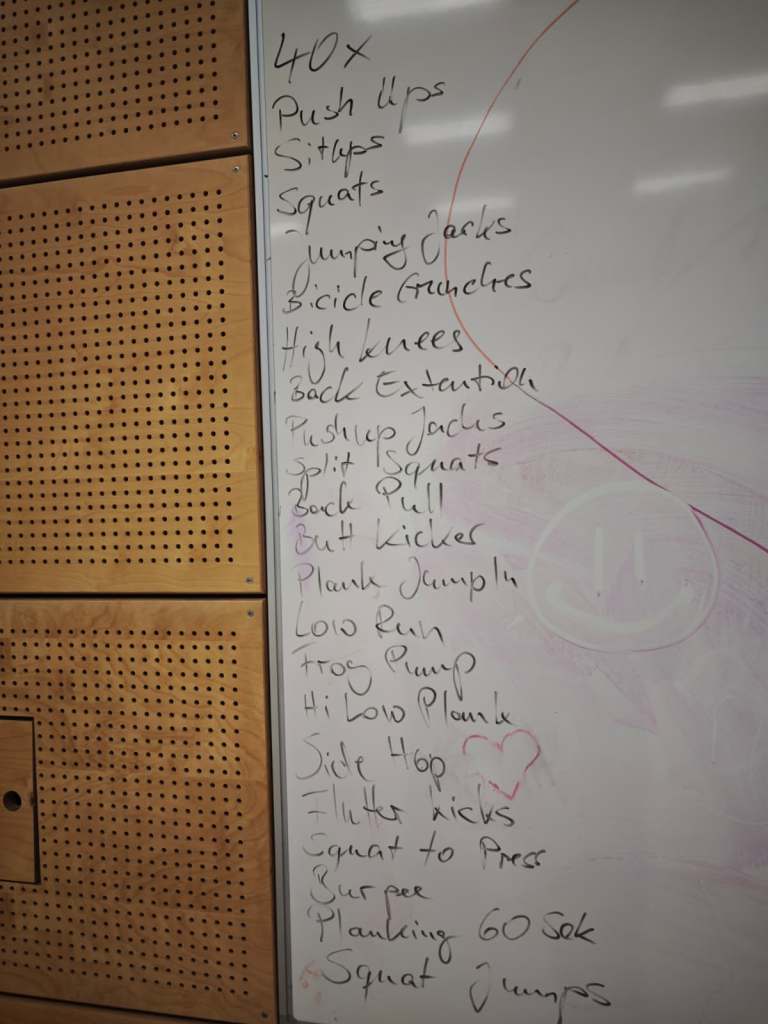 40x
Push Ups
Situps
Squats
Jumping Jacks
Bicicle Crunches
High Knees
Back Extention
Pushup Jacks
Split Squats
Back Pull
Butt Kicker
Plank Jump In
Low Run
Frog Pump
Hi Low Plank
Side Hop
Flutter Kicks
Squat to Press
Burpee
Planking 60 Sek
Squat Jumps